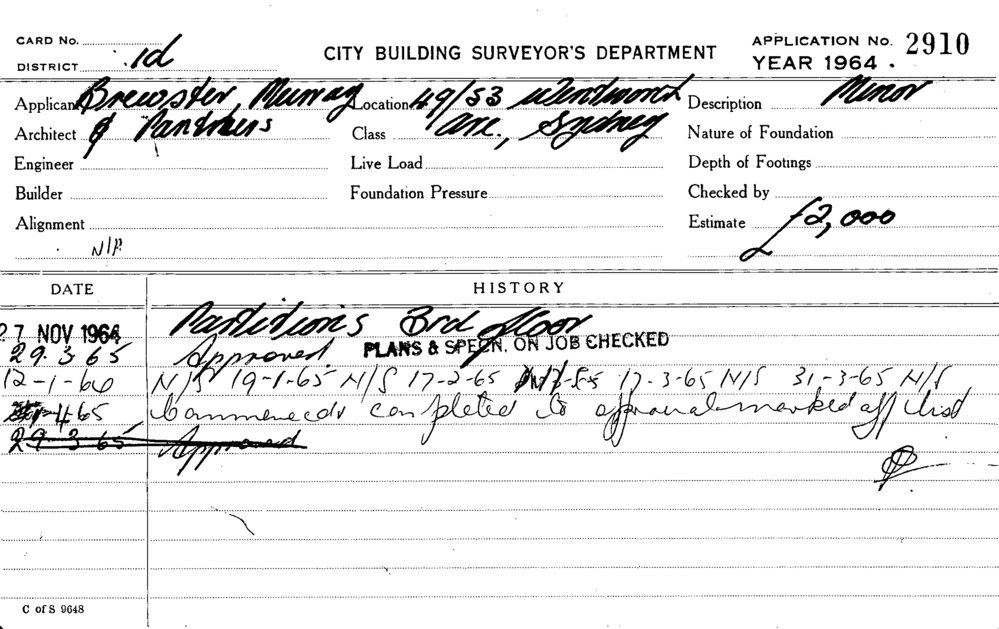 CARD No.
DISTRICT 1d
CITY BUILDING SURVEYOR'S DEPARTMENT
APPLICATION No. 2910
YEAR 1964.
Applicant Brewster, Murray Location 49/53 Wentworth Description Minor
Architect & Partners Class Ave., Sydney Nature of Foundation
Engineer Live Load Depth of Footings
Builder Foundation Pressure Checked by
Alignment Estimate £2,000
N/A
DATE HISTORY
27 NOV 1964 Partitions 3rd floor
29.3.65 Approved. PLANS & SPECN. ON JOB CHECKED
12-1-66 N/S 19-1-65 N/S 17-2-65 17-3-65 N/S 31-3-65 N/S
4.65 Commenced completed to approval marked off list
29.3.65 Approved
C of S 9648